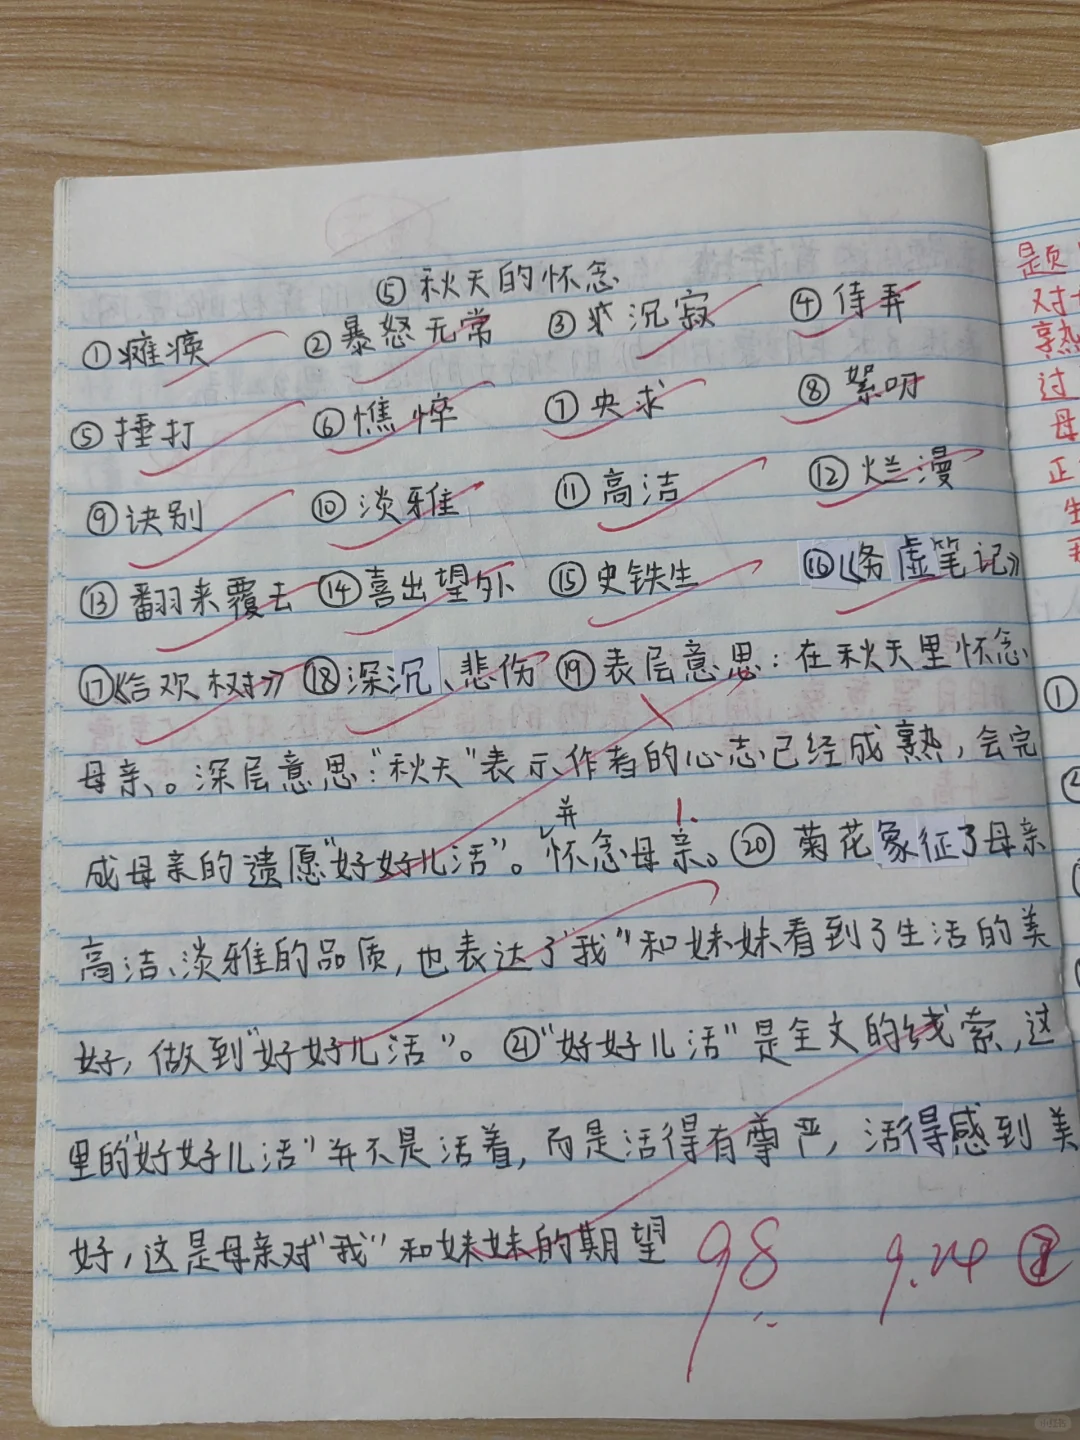 ⑤ 秋天的怀念
①瘫痪 ②暴怒无常 ③沉寂 ④侍弄
⑤捶打 ⑥憔悴 ⑦央求 ⑧絮叨
⑨诀别 ⑩淡雅 ⑪高洁 ⑫烂漫
⑬翻来覆去 ⑭喜出望外 ⑮史铁生 ⑯《务虚笔记》
⑰《合欢树》 ⑱深沉、悲伤 ⑲表层意思：在秋天里怀念
母亲。深层意思："秋天"表示作者的心志已经成熟，会完
成母亲的遗愿"好好儿活"。并怀念母亲。⑳ 菊花象征了母亲
高洁、淡雅的品质，也表达了"我"和妹妹看到了生活的美
好，做到"好好儿活"。㉑"好好儿活"是全文的线索，这
里的"好好儿活"并不是活着，而是活得有尊严，活得感到美
好，这是母亲对"我"和妹妹的期望
98 9.24
1.
题
对
熟
过
母
正
生
①
小红书